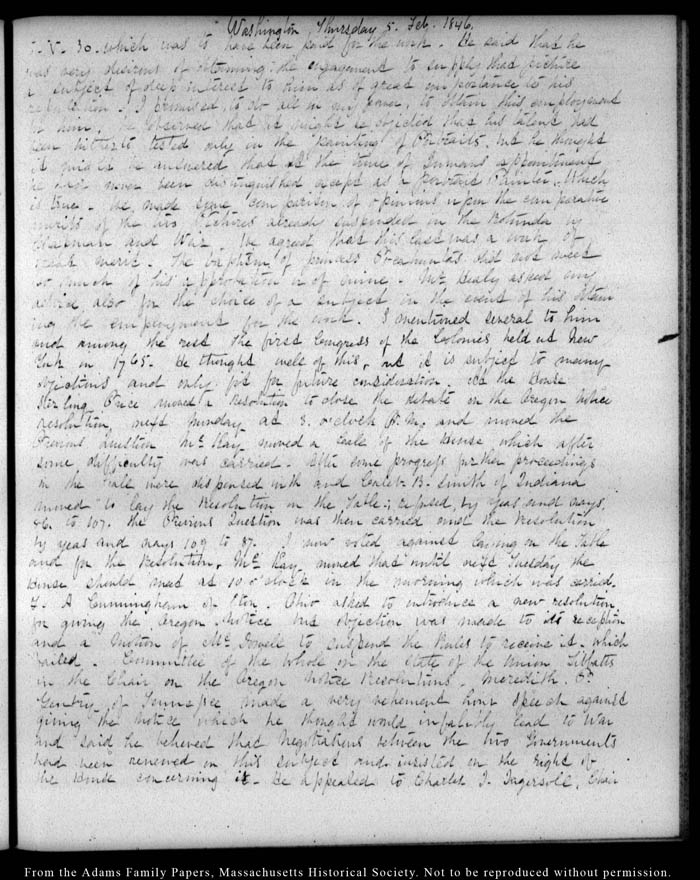 Washington, Thursday 5. Feb. 1846.
V. 30. which was to have been paid for the work. He said that he
was very desirous of obtaining the engagement to supply that picture
a subject of deep interest to him as of great importance to his
reputation. I promised to do all in my power, to obtain this employment
for him, he observed that it might be objected that his talent had
been hitherto tested only in the painting of Portraits, but he thought
it might be answered that at the time of Inmans appointment
he had never been distinguished except as a portrait Painter. Which
is true. We made some comparison of opinions upon the comparative
merits of the two Pictures already suspended in the Rotunda by
Chapman and Weir. We agreed that this last was a work of
great merit. The baptism of princess Pocahontas did not meet
so much of his approbation or of mine. Mr Healy asked my
advice also for the choice of a subject in the event of his obtain
ing the employment for the work. I mentioned several to him
and among the rest the first Congress of the Colonies held at New
York in 1765. He thought well of this, but it is subject to many
objections and only put for future consideration. At the House
Sterling Price moved a Resolution to close the debate on the Oregon Notice
resolution, next Monday at 3. o'clock P.M. and moved the
Previous Question Mr Hay moved a Call of the House which after
some difficulty was carried. After some progress further proceedings
in the Call were dispensed with and Caleb B. Smith of Indiana
moved to lay the Resolution on the Table; refused, by yeas and nays,
86. to 107. the Previous Question was then carried and the Resolution
by yeas and nays 109 to 87. I now voted against laying on the Table
and for the Resolution. Mr Hay moved that until next Tuesday the
House should meet at 10 o'clock in the morning which was carried.
F. A Cunningham of Eton. Ohio asked to introduce a new resolution
for giving the Oregon Notice but objection was made to its reception
and a motion of Mc Dowell to suspend the Rules to receive it, which
failed. Committee of the Whole on the State of the Union, Tibbatts
in the Chair on the Oregon Notice Resolutions. Meredith. P.
Gentry of Tennessee made a very vehement hour speech against
giving the notice which he thought would infallibly lead to War
and said he believed that Negotiations between the two Governments
had been renewed on this subject and insisted on the right of
the House concerning it. He appealed to Charles J. Ingersoll, Chair
From the Adams Family Papers, Massachusetts Historical Society. Not to be reproduced without permission.